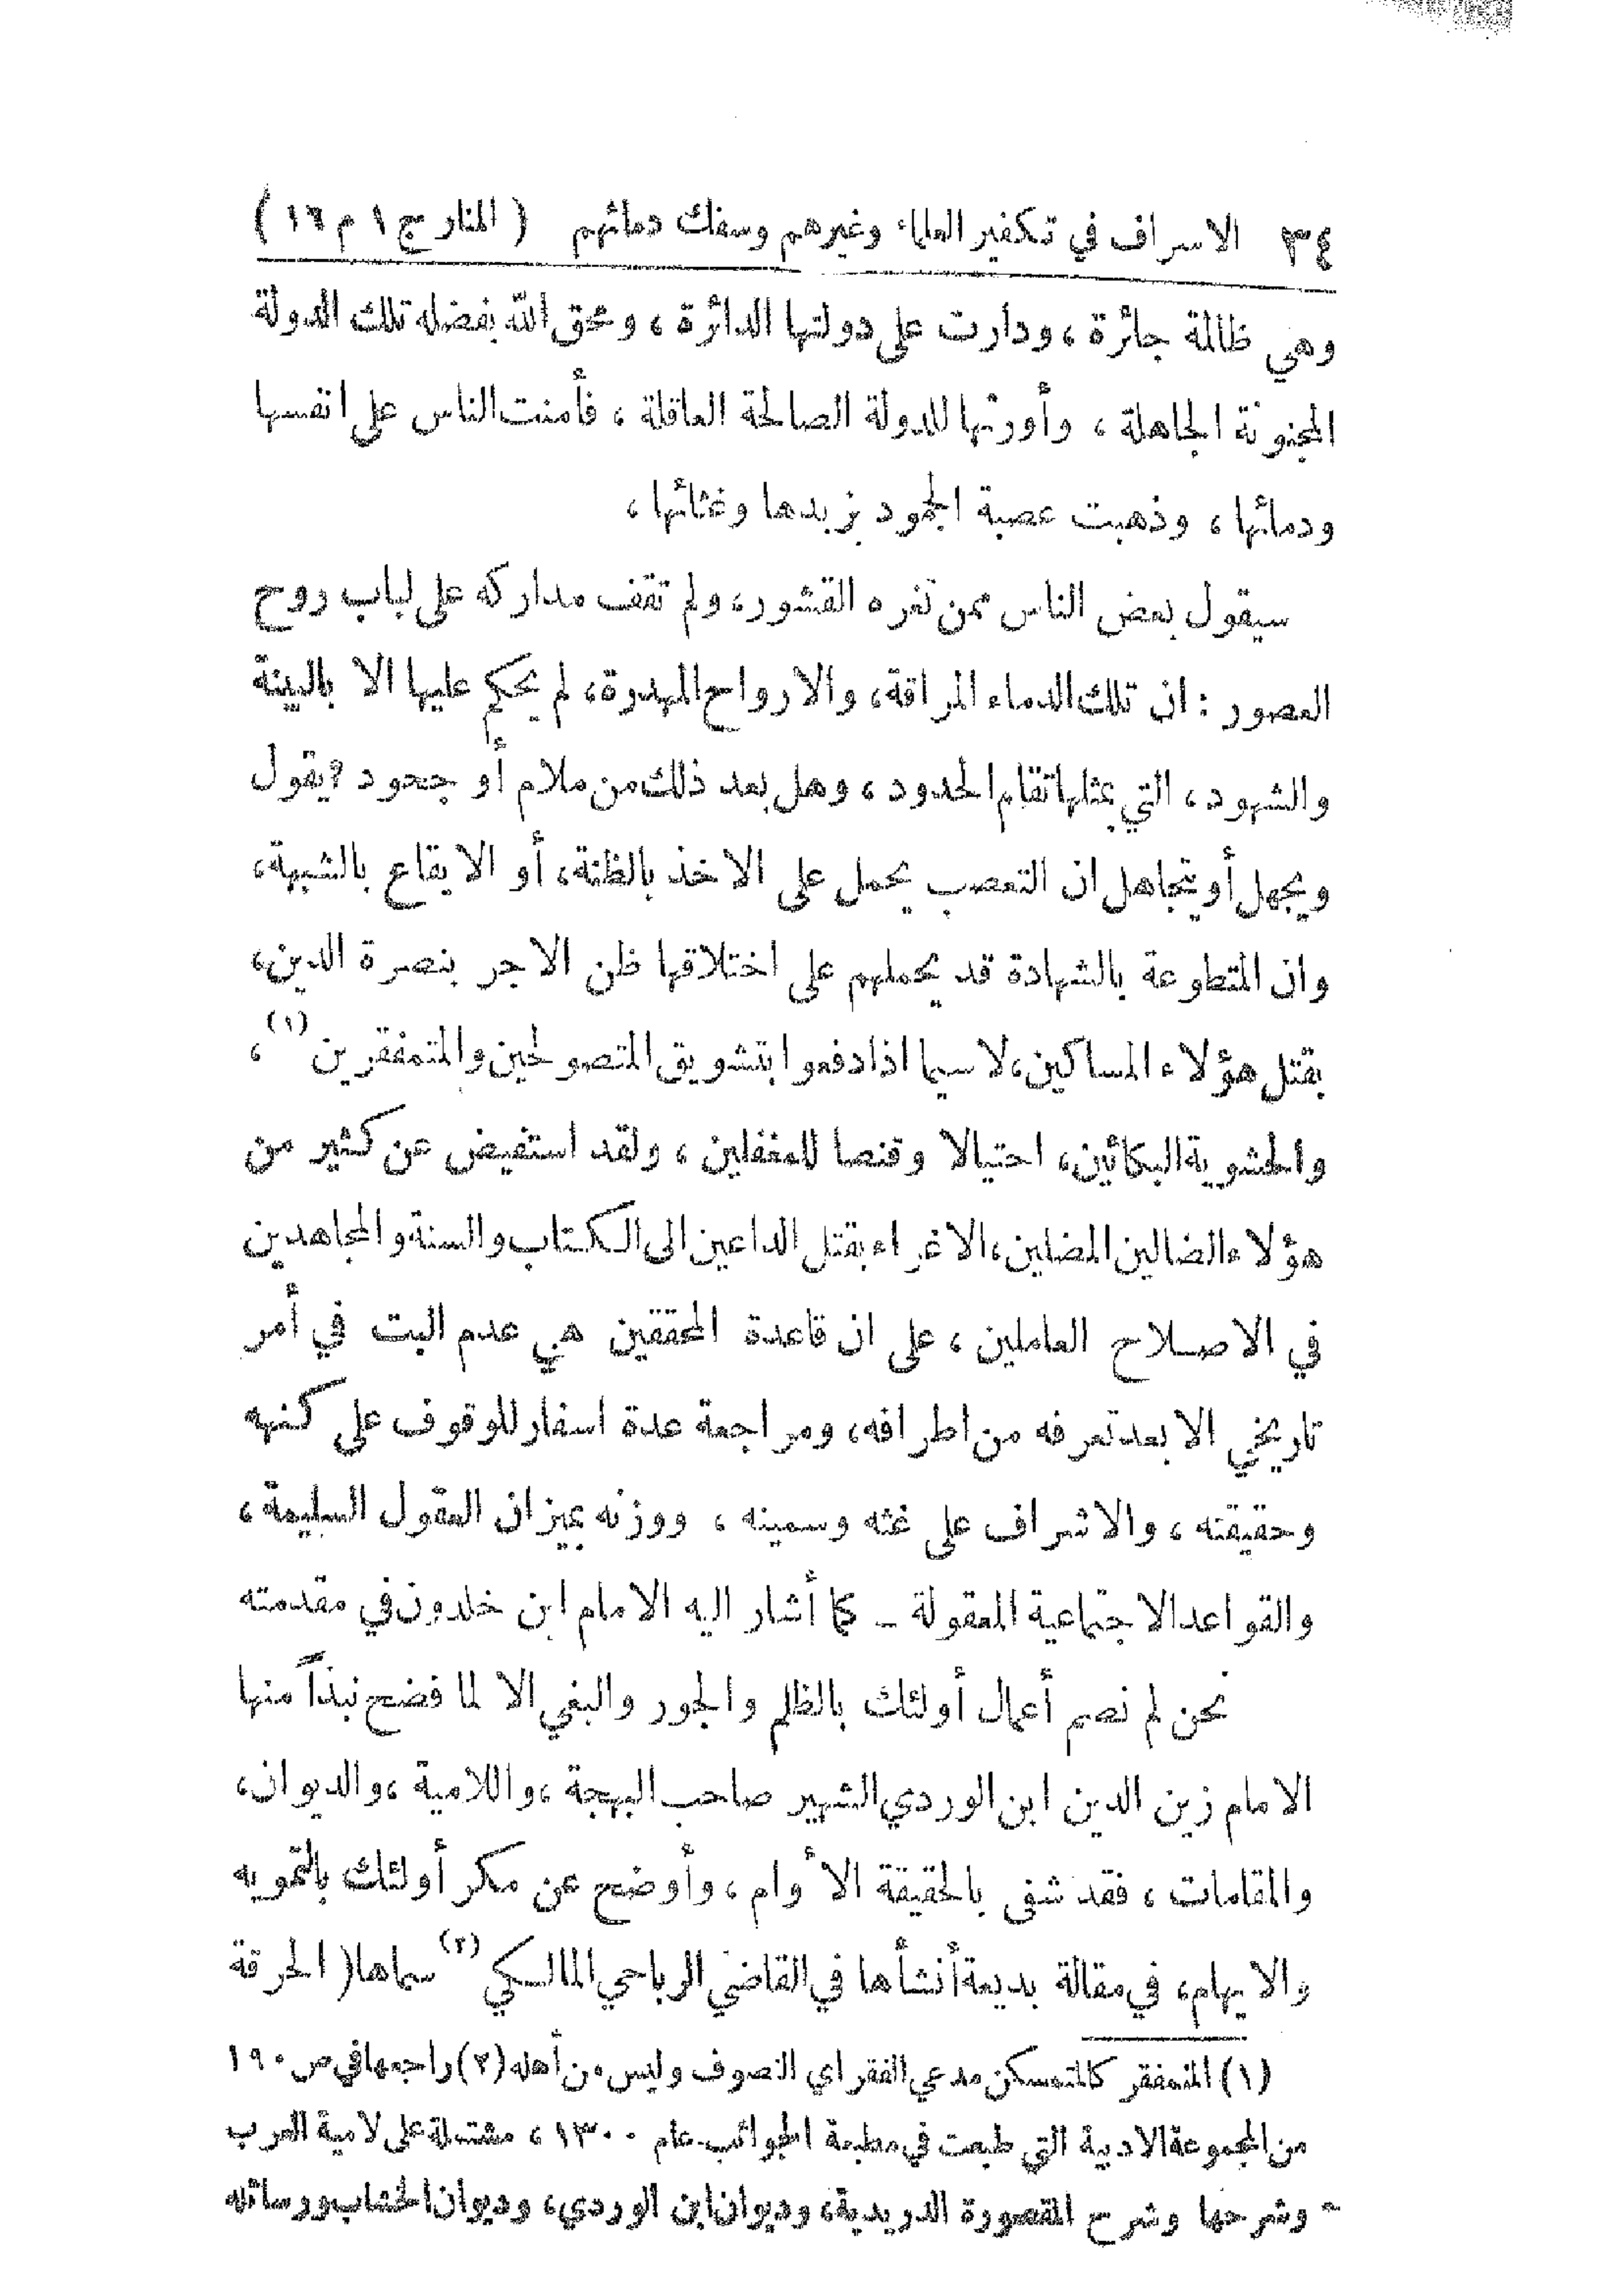 ٣٤ الاسراف في تكفير العلماء وغيرهم وسفك دمائهم ( المنار ج ١ م ١٦ )
وهي ظالمة جائرة ، ودارت على دولتها الدائرة ، ومحق الله بفضله تلك الدولة
المجنونة الجاهلة ، وأورثها للدولة الصالحة العاقلة ، فأمنت الناس على انفسها
ودمائها ، وذهبت عصبة الجمود بزبدها وغثائها ،
سيقول بعض الناس ممن تغره القشور، ولم تقف مداركه على لباب روح
العصور : ان تلك الدماء المراقة، والارواح المهدورة، لم يحكم عليها الا بالبينة
والشهود ، التي بمثلها تقام الحدود ، وهل بعد ذلك من ملام أو جحود ؟ يقول
ويجهل أو يتجاهل ان التعصب يحمل على الاخذ بالظنة، أو الايقاع بالشبهة،
وان المتطوعة بالشهادة قد يحملهم على اختلاقها ظن الاجر بنصرة الدين،
بقتل هؤلاء المساكين، لا سيما اذا دفعوا بتشويق المتصولحين والمتمفقرين (١) ،
والحشوية البكائين، احتيالا وقنصا للمغفلين ، ولقد استفيض عن كثير من
هؤلاء الضالين المضلين، الاغراء بقتل الداعين الى الكتاب والسنة والمجاهدين
في الاصلاح العاملين ، على ان قاعدة المحققين هي عدم البت في أمر
تاريخي الا بعد تعرفه من اطرافه، ومراجعة عدة اسفار للوقوف على كنهه
وحقيقته ، والاشراف على غثه وسمينه ، ووزنه بميزان العقول السليمة ،
والقواعد الاجتماعية المعقولة ـ كما أشار اليه الامام ابن خلدون في مقدمته
نحن لم نصم أعمال أولئك بالظلم والجور والبغي الا لما فضح نبذاً منها
الامام زين الدين ابن الوردي الشهير صاحب البهجة ، واللامية ، والديوان،
والمقامات ، فقد شفى بالحقيقة الأوام ، وأوضح عن مكر أولئك بالتمويه
والايهام، في مقالة بديعة أنشأها في القاضي الرباحي المالكي (٢) سماها ( الحرقة
(١) المتمفقر كالمتمسكن مدعي الفقر اي التصوف وليس من أهله (٢) راجعها في ص ١٩٠
من المجموعة الادبية التي طبعت في مطبعة الجوائب عام ١٣٠٠ ، مشتملة على لامية العرب
وشرحها وشرح المقصورة الدريدية، وديوان ابن الوردي، وديوان الخشاب ورسائله